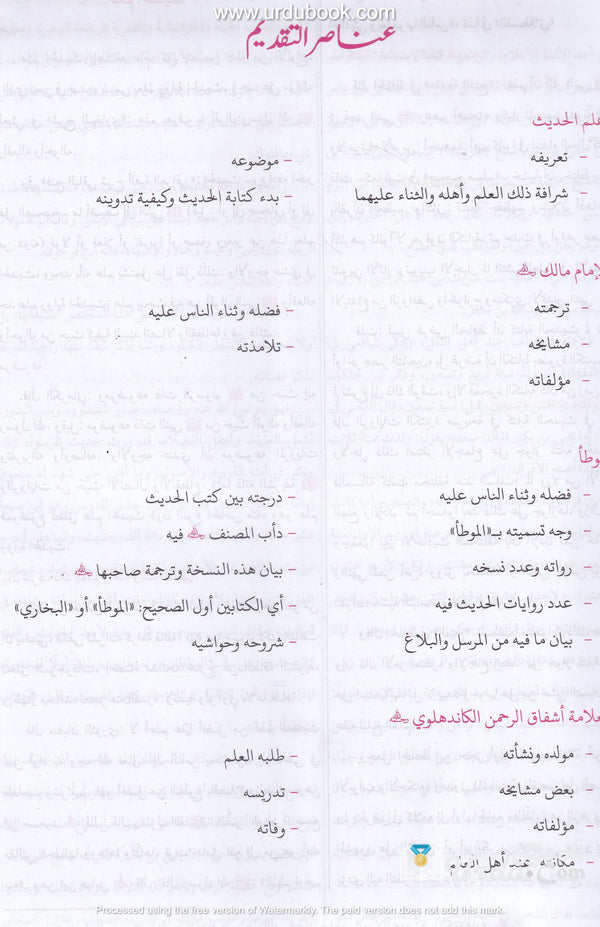 www.urdubook.com
عناصر التقديم
علم الحديث
- تعريفه
- موضوعه
- شرافة ذلك العلم وأهله والثناء عليهما
- بدء كتابة الحديث وكيفية تدوينه
الإمام مالك
- ترجمته
- فضله وثناء الناس عليه
- مشايخه
- تلامذته
- مؤلفاته
الموطأ
- فضله وثناء الناس عليه
- درجته بين كتب الحديث
- وجه تسميته بـ«الموطأ»
- دأب المصنف فيه
- رواته وعدد نسخه
- بيان هذه النسخة وترجمة صاحبها
- عدد روايات الحديث فيه
- أي الكتابين أول الصحيح: «الموطأ» أو «البخاري»
- بيان ما فيه من المرسل والبلاغ
- شروحه وحواشيه
العلامة أشفاق الرحمن الكاندهلوي
- مولده ونشأته
- طلبه العلم
- بعض مشايخه
- تدريسه
- مؤلفاته
- وفاته
- مكانته عند أهل العلم
Processed using the free version of Watermarkly. The paid version does not add this mark.